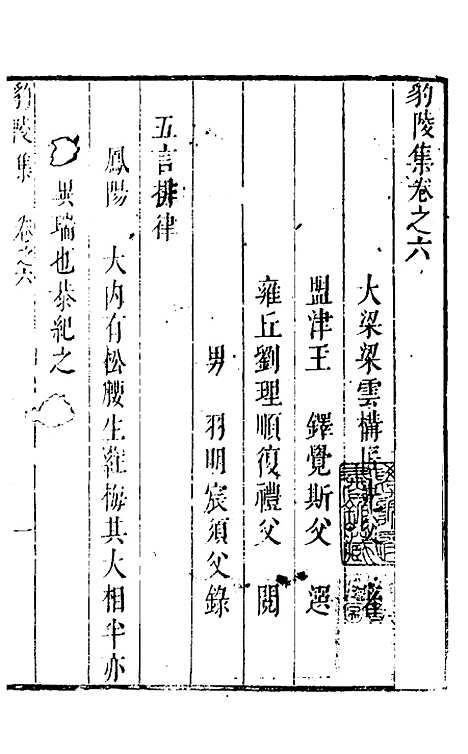 豹陵集卷之六
大梁梁雲構 著
盟津王　鐸覺斯父　選
雍丘劉理順復禮父　閱
男　羽明宸須父錄
五言排律
鳳陽　大內有松腰生維梅其大相半亦
異瑞也恭紀之
豹陵集　卷之六　一